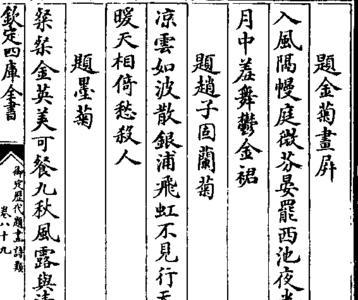 題金菊畫屏
入風隔幔度微芬晏罷西池夜
月中羞舞鬱金裙
題趙子固蘭菊
涼雲如波散銀浦飛虹不見行
暖天相倚愁殺人
題墨菊
粲粲金英美可餐九秋風露與
欽定四庫全書
御定歷代題畫詩類
卷八十九